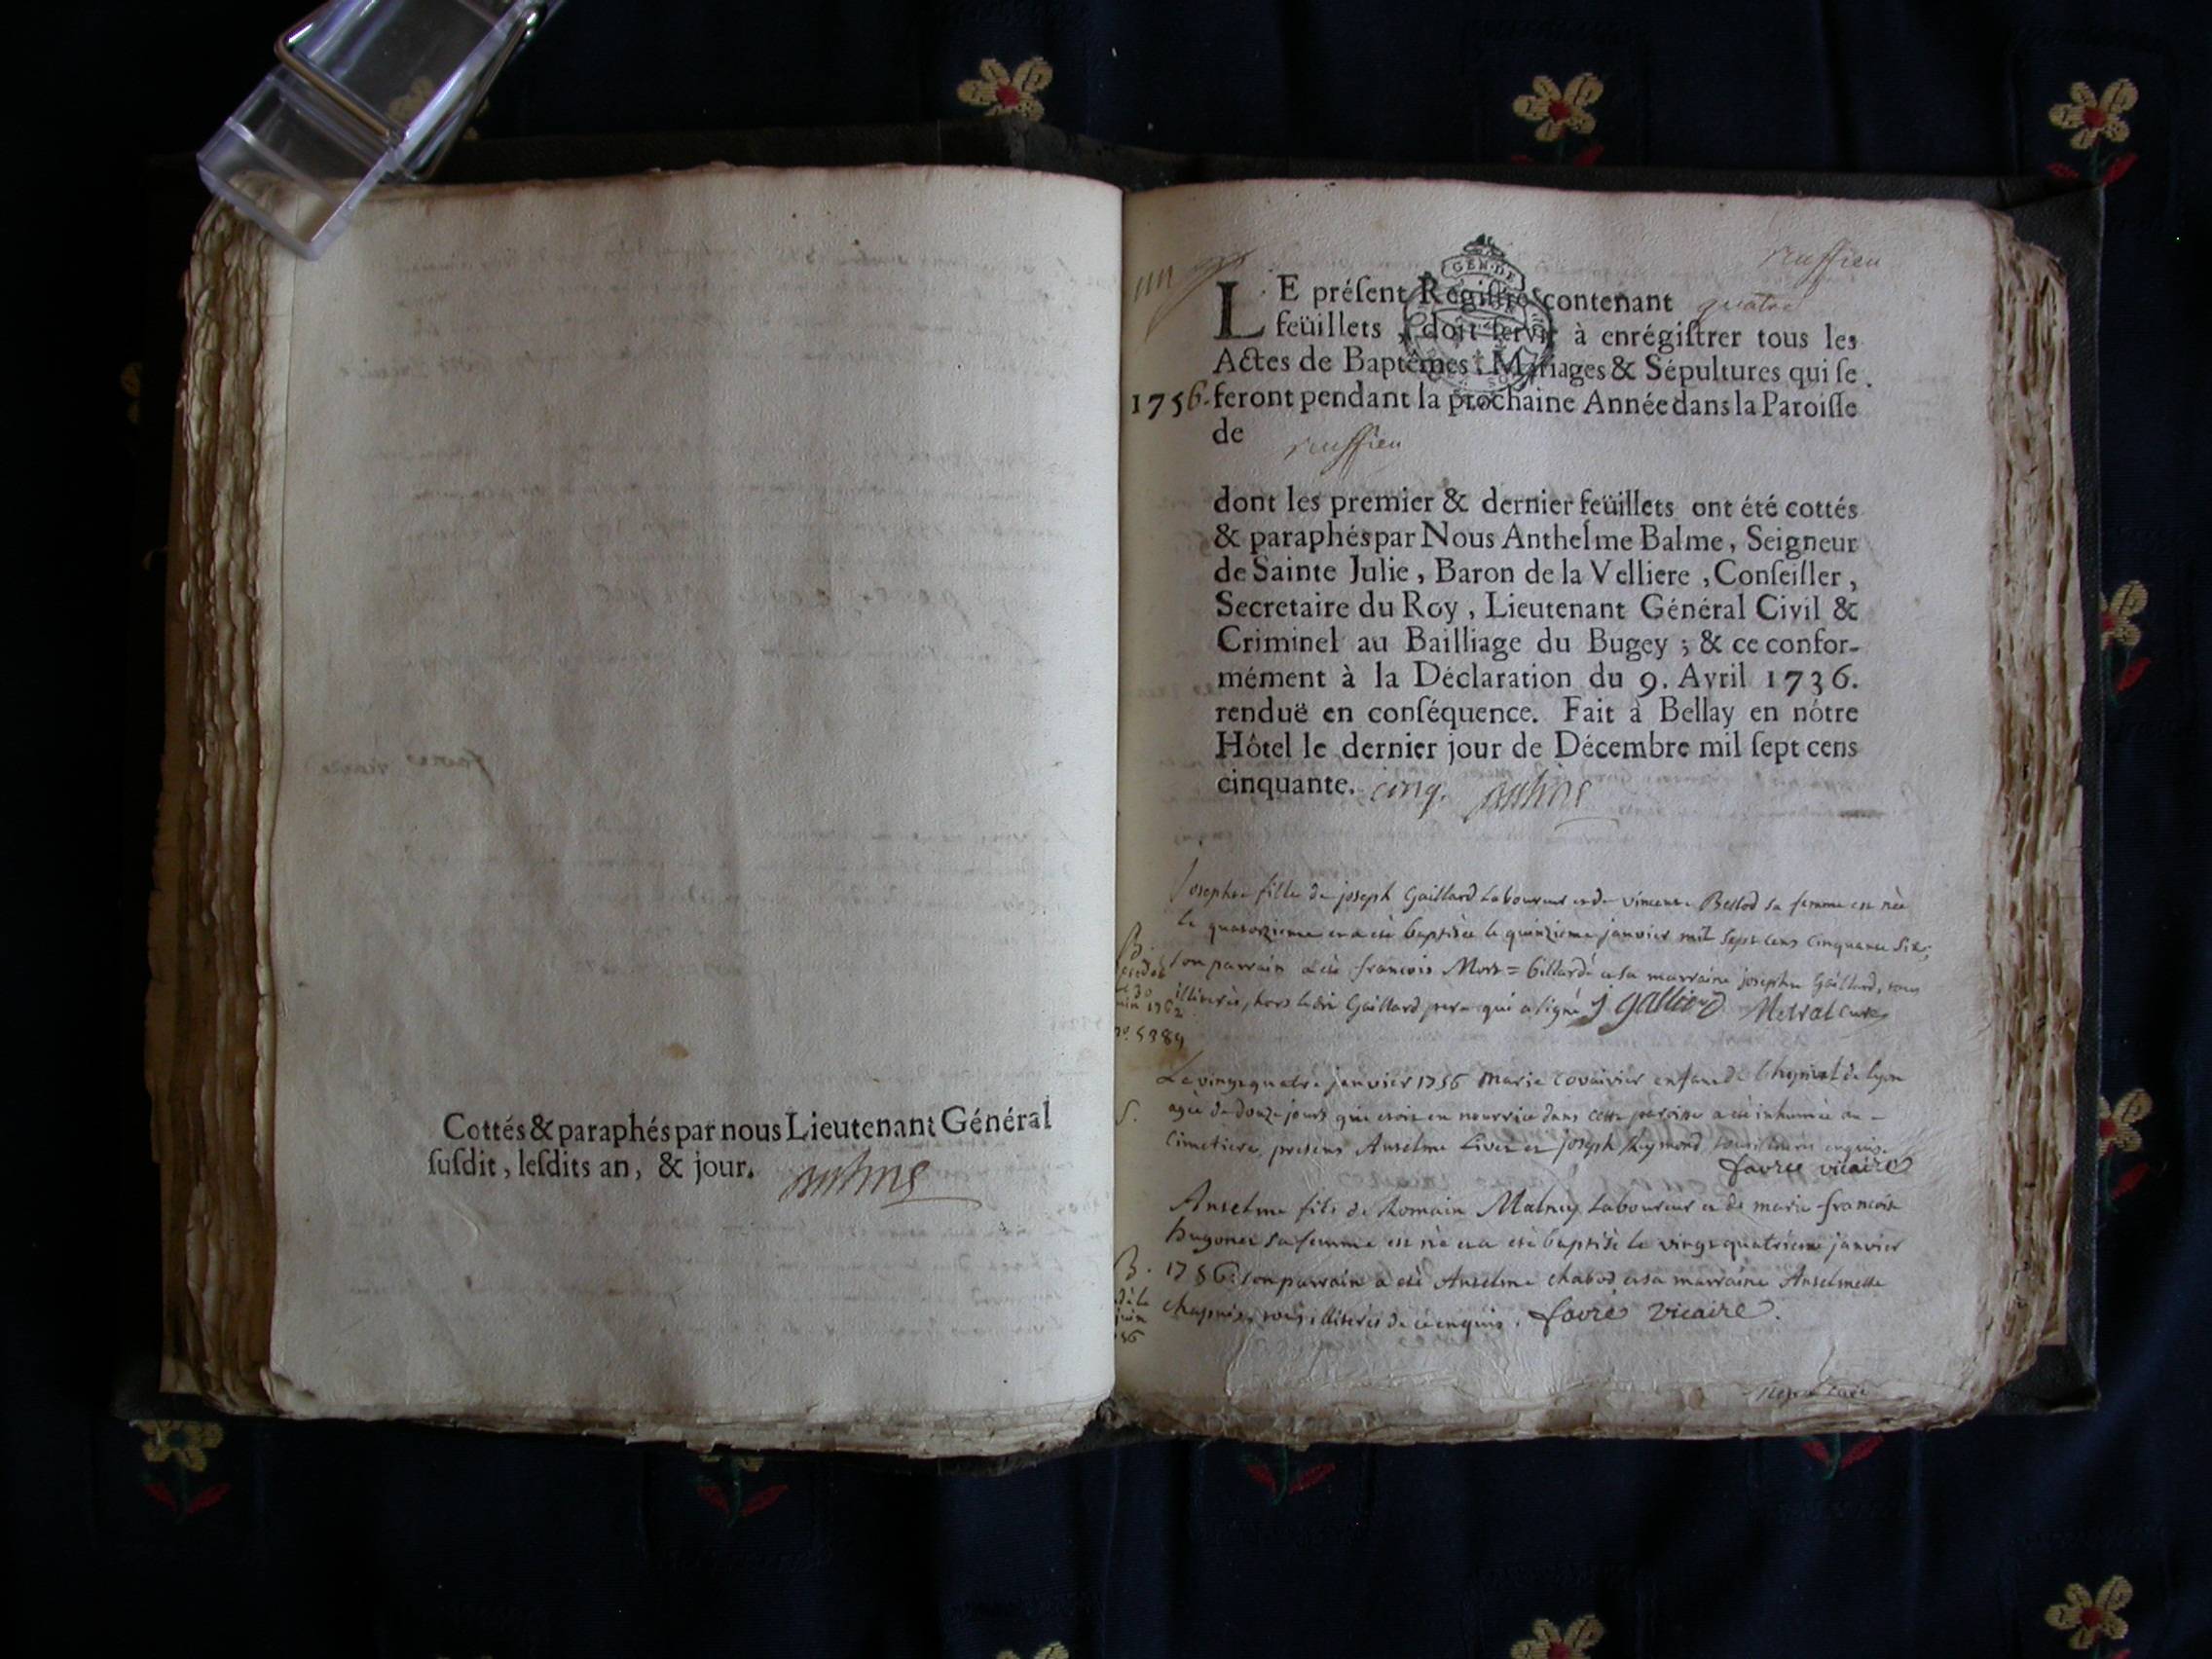 Cottés & paraphés par nous Lieutenant Général
ſuſdit, leſdits an, & jour.
ruffieu
LE préſent Regiſtre contenant quatre
feüillets, doit ſervir à enrégiſtrer tous les
Actes de Baptêmes, Mariages & Sépultures qui ſe
1756. feront pendant la prochaine Année dans la Paroiſſe
de ruffieu
dont les premier & dernier feüillets ont été cottés
& paraphés par Nous Anthelme Balme, Seigneur
de Sainte Julie, Baron de la Velliere, Conſeiller,
Secretaire du Roy, Lieutenant Général Civil &
Criminel au Bailliage du Bugey; & ce confor-
mément à la Déclaration du 9. Avril 1736.
renduë en conſéquence. Fait à Bellay en nôtre
Hôtel le dernier jour de Décembre mil ſept cens
cinquante. cinq.
Josephe fille de joseph Gaillard Laboureur et de vincente Bellod sa femme est née
le quatorzieme et a été baptisée le quinzieme janvier mil sept cens cinquante six,
B. son parrain a été francois et sa marraine josephe Gaillard, tous
illiterés, hors ledit Gaillard pere qui a signé j galliard Metral curé
no. 5389
Le vingt quatre janvier 1756 Marie enfant de l'hopital de lyon
S. agée de douze jours qui etoit en nourrice dans cette paroisse a été inhumée au
Cimetiere, presens Anselme Livet et joseph Raymond enquis.
favre vicaire
Anselme fils de Romain Laboureur et de marie francoise
hugonet sa femme est né et a été baptisé le vingt quatrieme janvier
B. 1756. son parrain a été Anselme chabod et sa marraine Anselmette
chapuis, tous illiterés de ce enquis. favre vicaire.